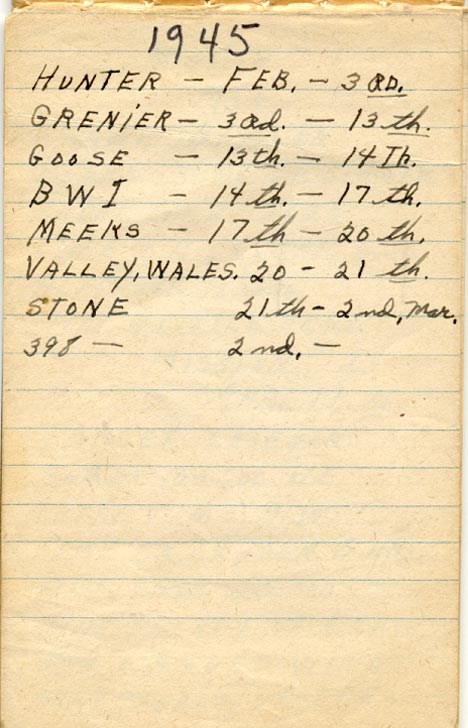 1945
HUNTER - FEB. - 3RD.
GRENIER - 3rd. - 13th.
GOOSE - 13th. - 14Th.
BWI - 14th. - 17th.
MEEKS - 17th - 20th.
VALLEY, WALES. 20 - 21th.
STONE 21th - 2nd, Mar.
398 - 2nd. -